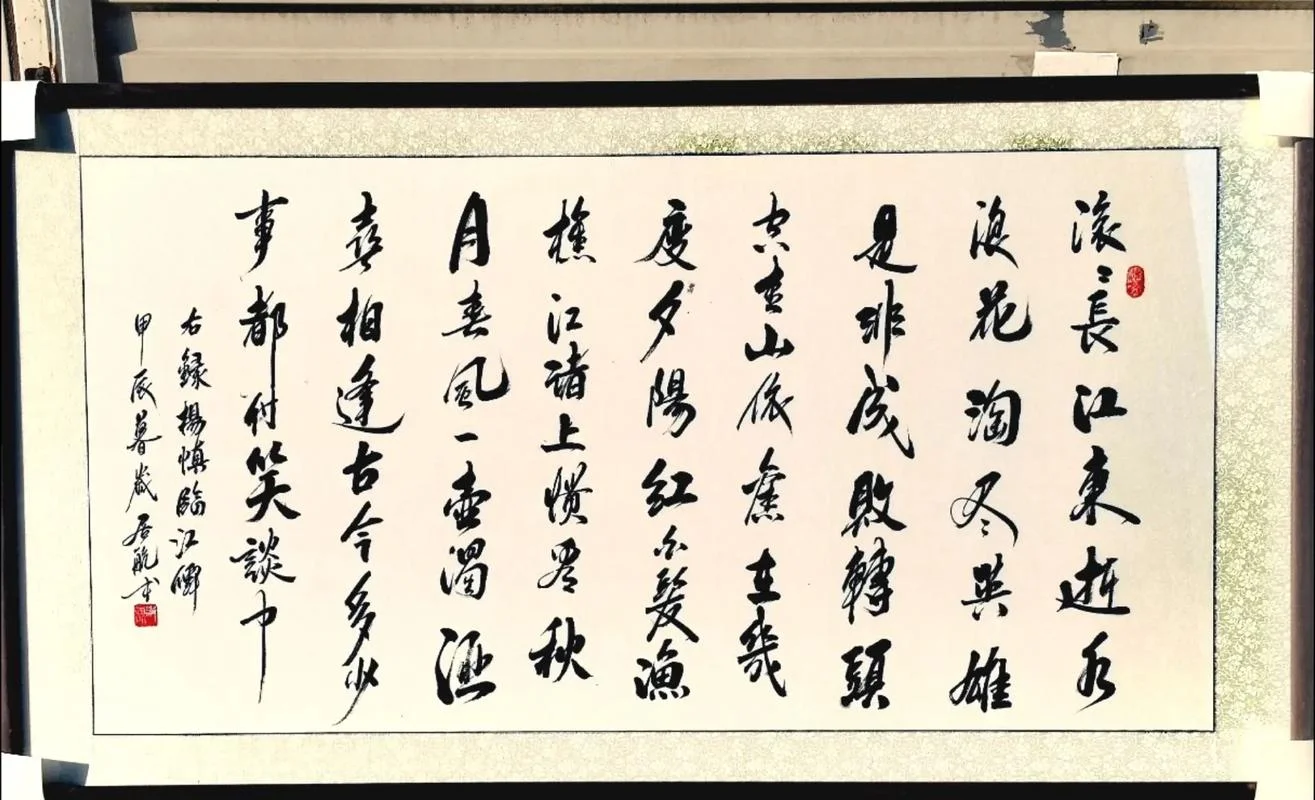 滚〻長江東逝水
浪花淘尽英雄
是非成敗轉頭
空青山依舊在幾
度夕陽紅白髮漁
樵江渚上惯看秋
月春風一壺濁酒
喜相逢古今多少
事都付笑談中
右録楊慎臨江仙
甲辰暮歲航书